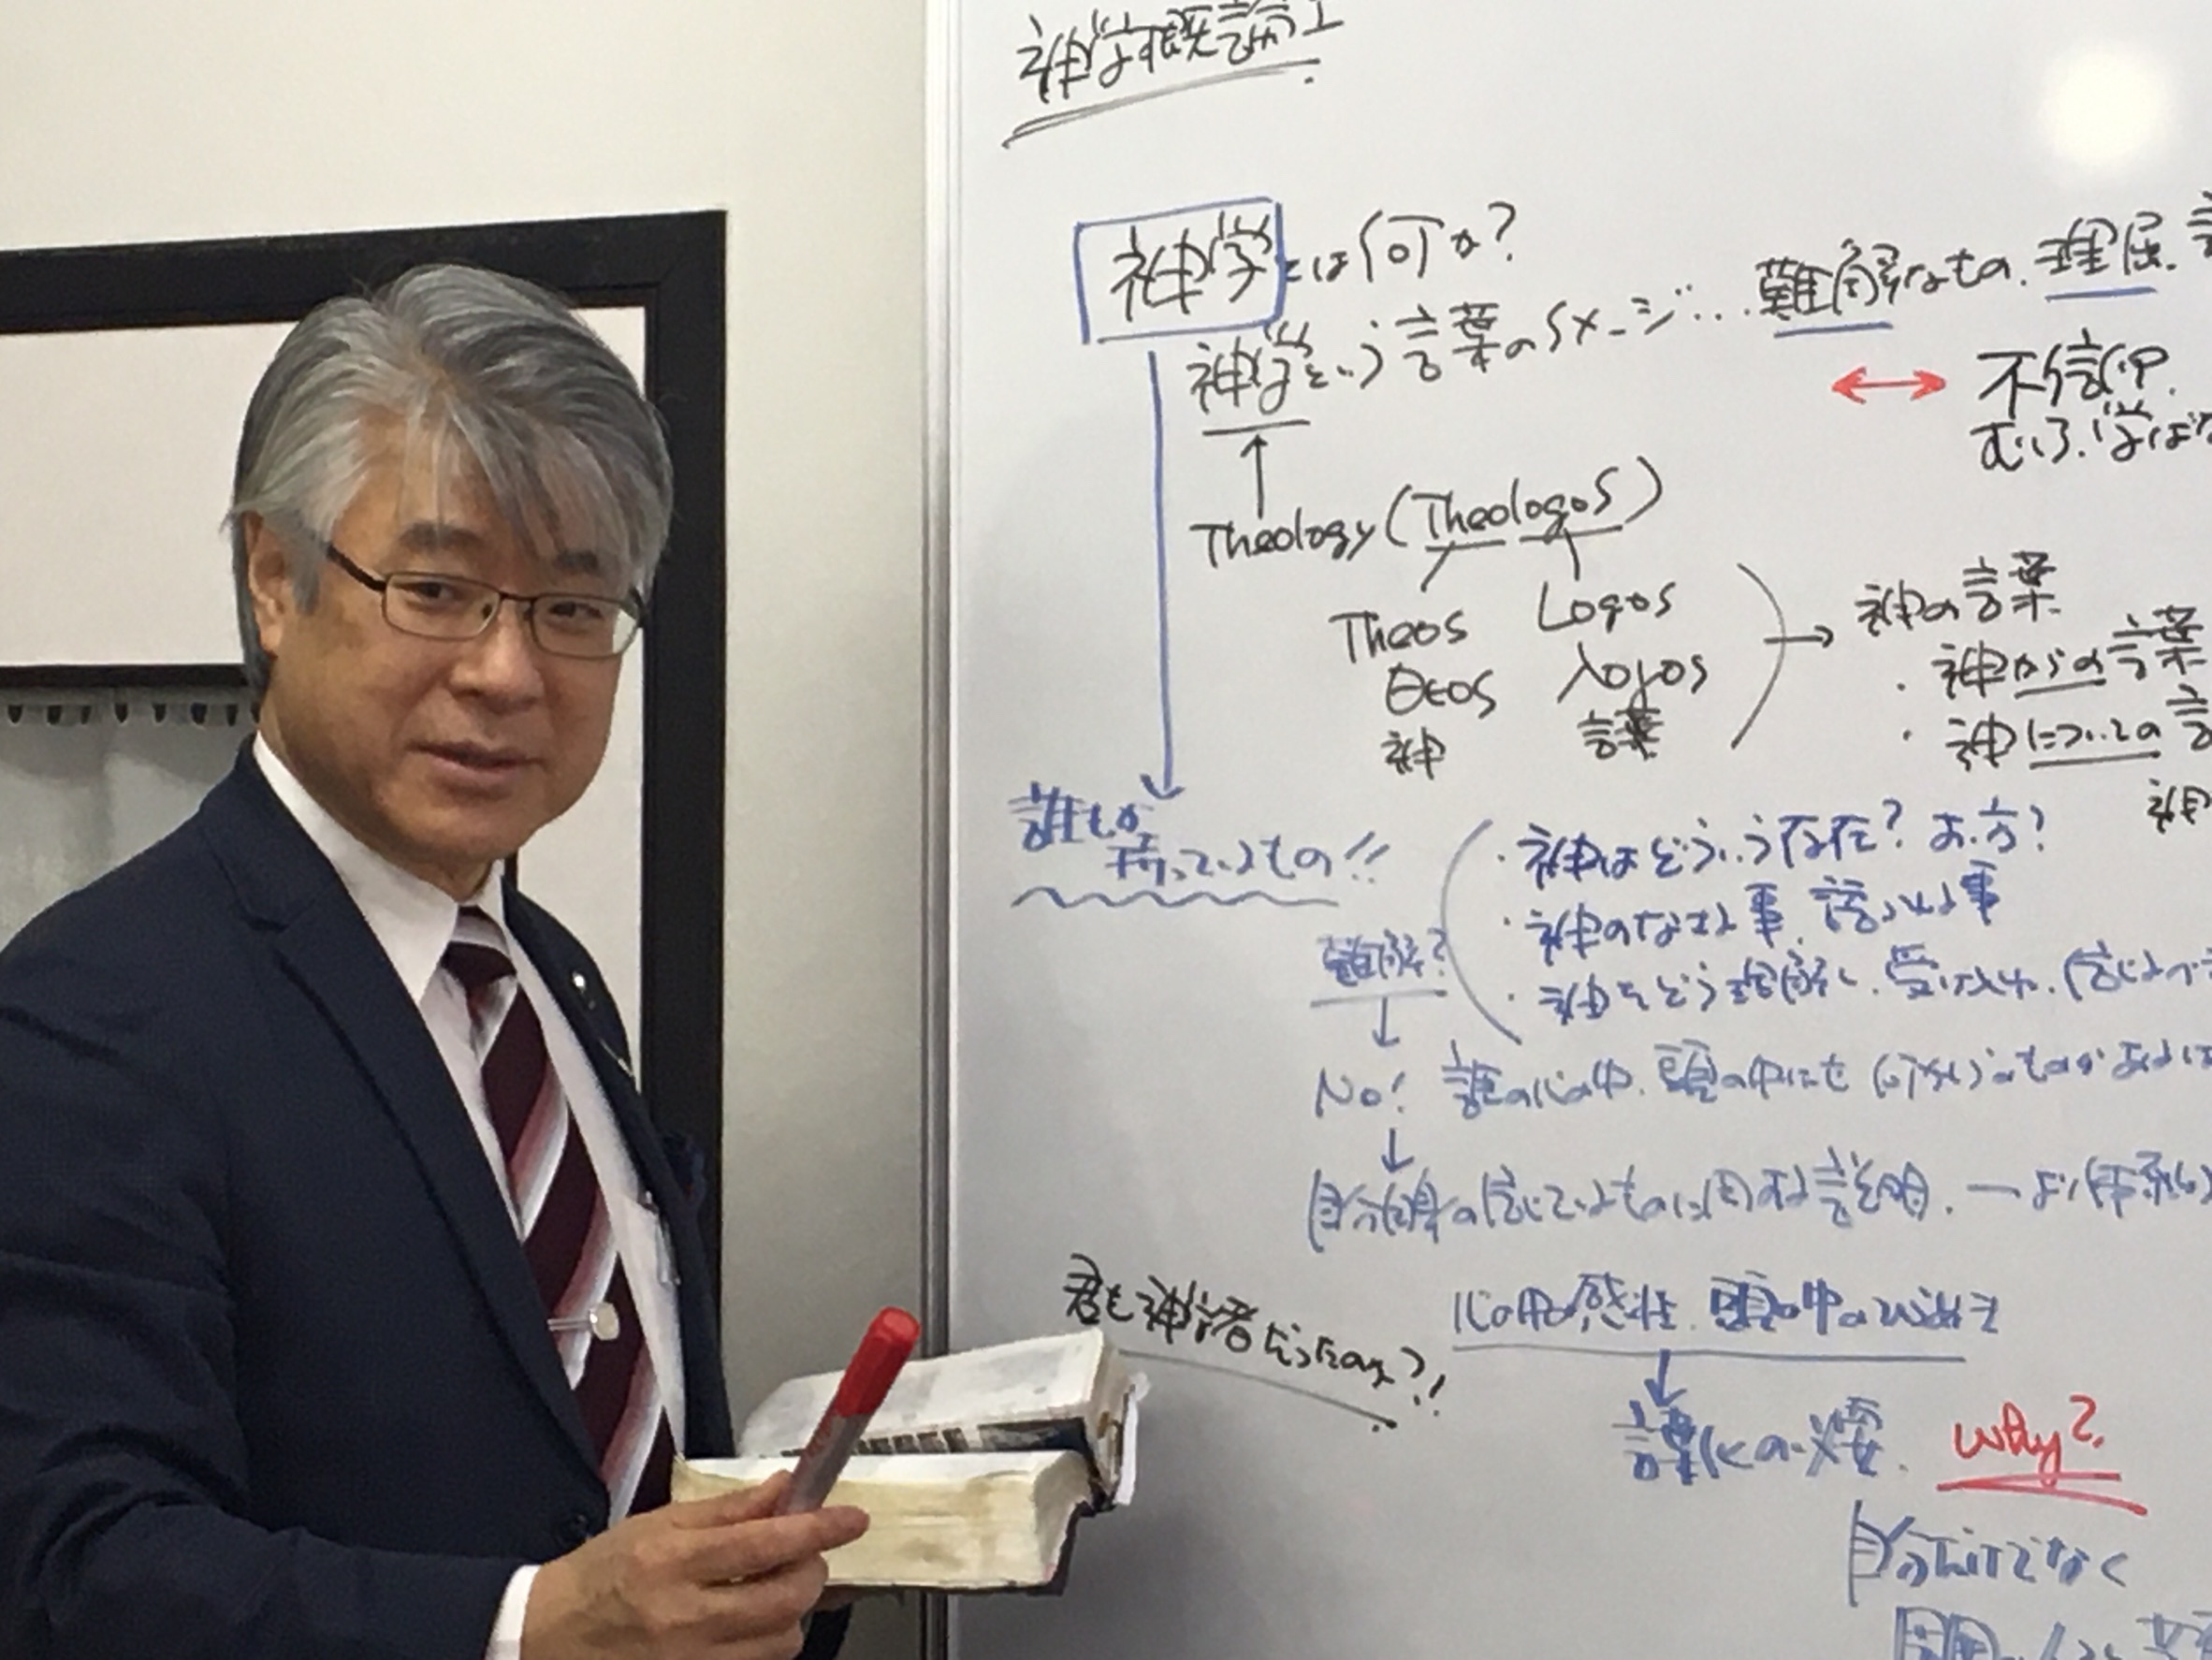 神学概論I
神学とは何か?
神学という言葉のイメージ...難解なもの、理屈、
不信仰
むしろ、学ばな
Theology (Theologos)
Theos Logos
Θεos λογos
神 言葉
神の言葉
・神からの言葉
・神についての言
神
誰もが
持っているもの!!
・神はどういう存在? お方?
・神のなさる事、語られる事
難解?
・神をどう理解し、受け止め、信じるべき
No! 誰の心の中、頭の中にも何かしらのものがある
自分自身の信じているものに関する説明、一より体系的
君も神学者だったのか?!
心の中の感性、頭の中の
言葉化の必要 Why?
自分だけでなく